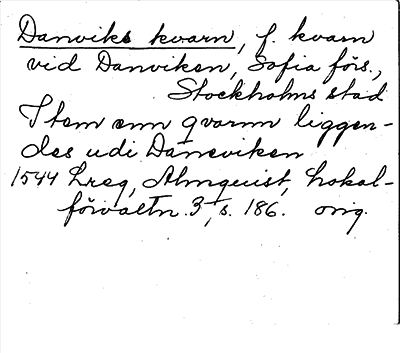 Danviks kvarn, f. kvarn
vid Danviken, Sofia förs.,
Stockholms stad
Item enn qvarnn liggen-
des udi Daneviken
1544 Lreg, Almquist, Lokal-
förvaltn. 3, s. 186. orig.